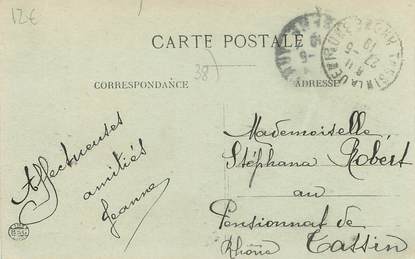 12€
CARTE POSTALE
38)
CORRESPONDANCE
ADRESSE
Affectueuses
amitiés
Jeanne
Mademoiselle
Stéphana Robert
au
Pensionnat de
Rhône Tassin